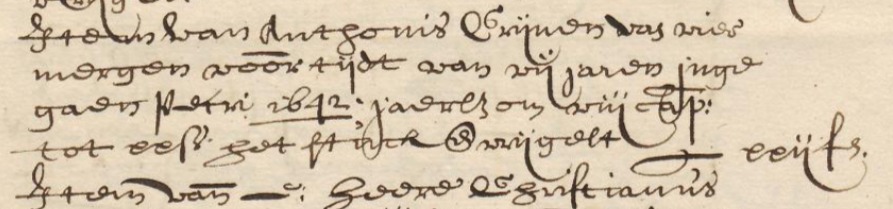 Item van Anthonis Grijnen van vier
mergen voor tijdt van vij jaren inge
gaen Petri 1642 jaerlx om viij cap:
tot xxs het stuck vrijgelt
xxij
Item van e: heere Christianus